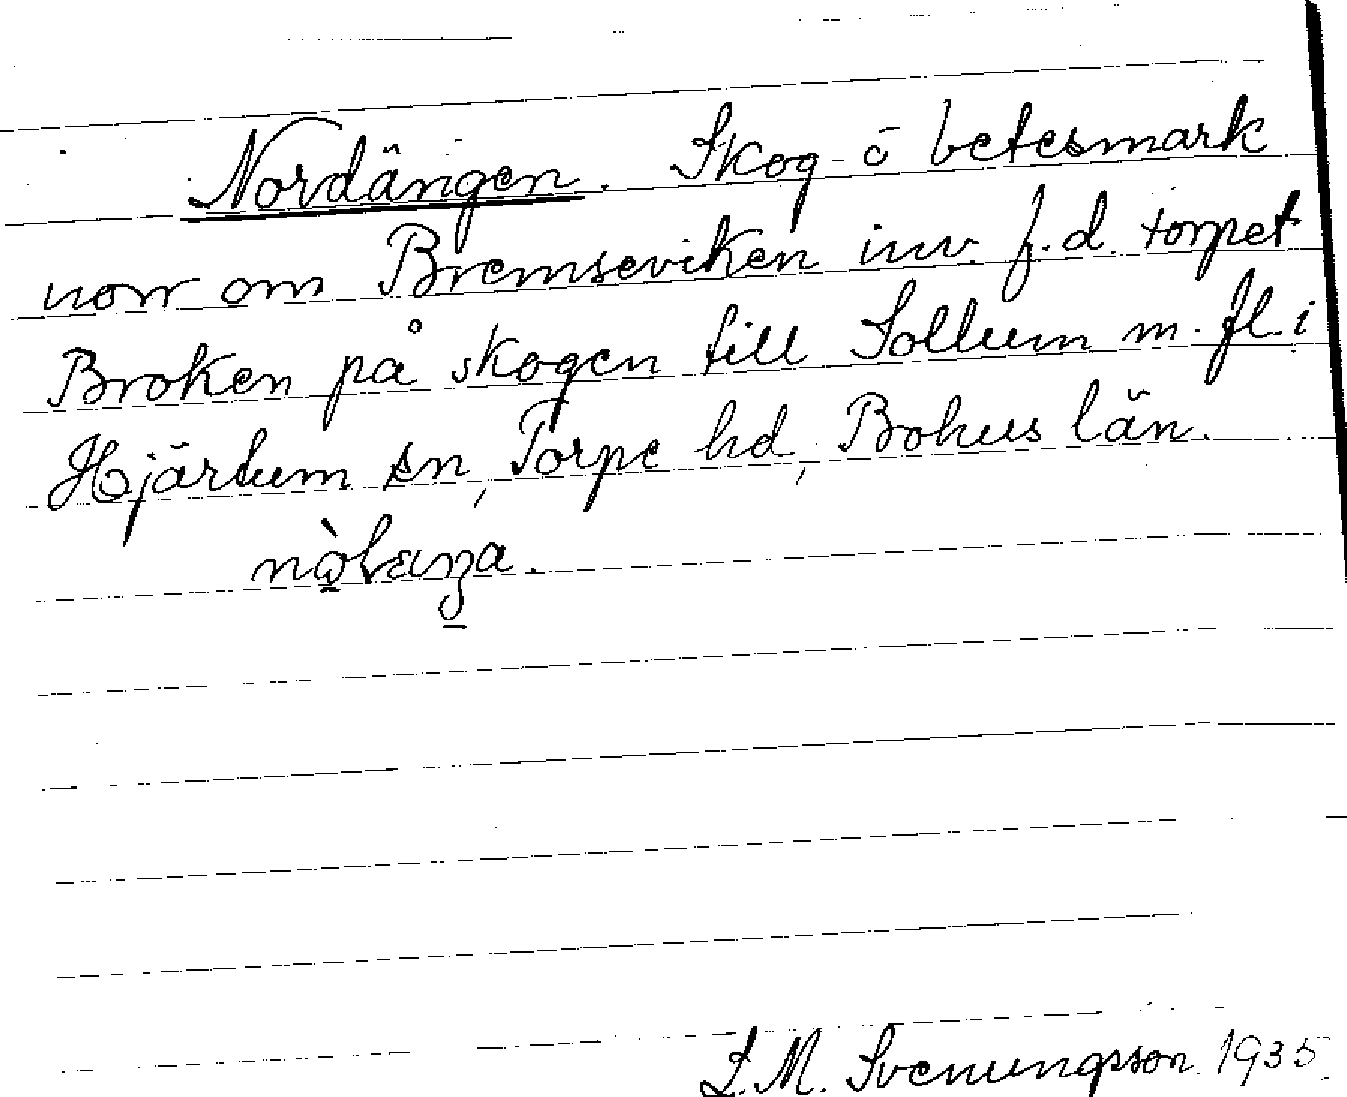 Nordängen. Skog o betesmark
norr om Bremseviken inv. f.d. torpet
Broken på skogen till Sollum m. fl. i
Hjärtum sn, Torpe hd, Bohus län.
S. M. Svenungsson 1935